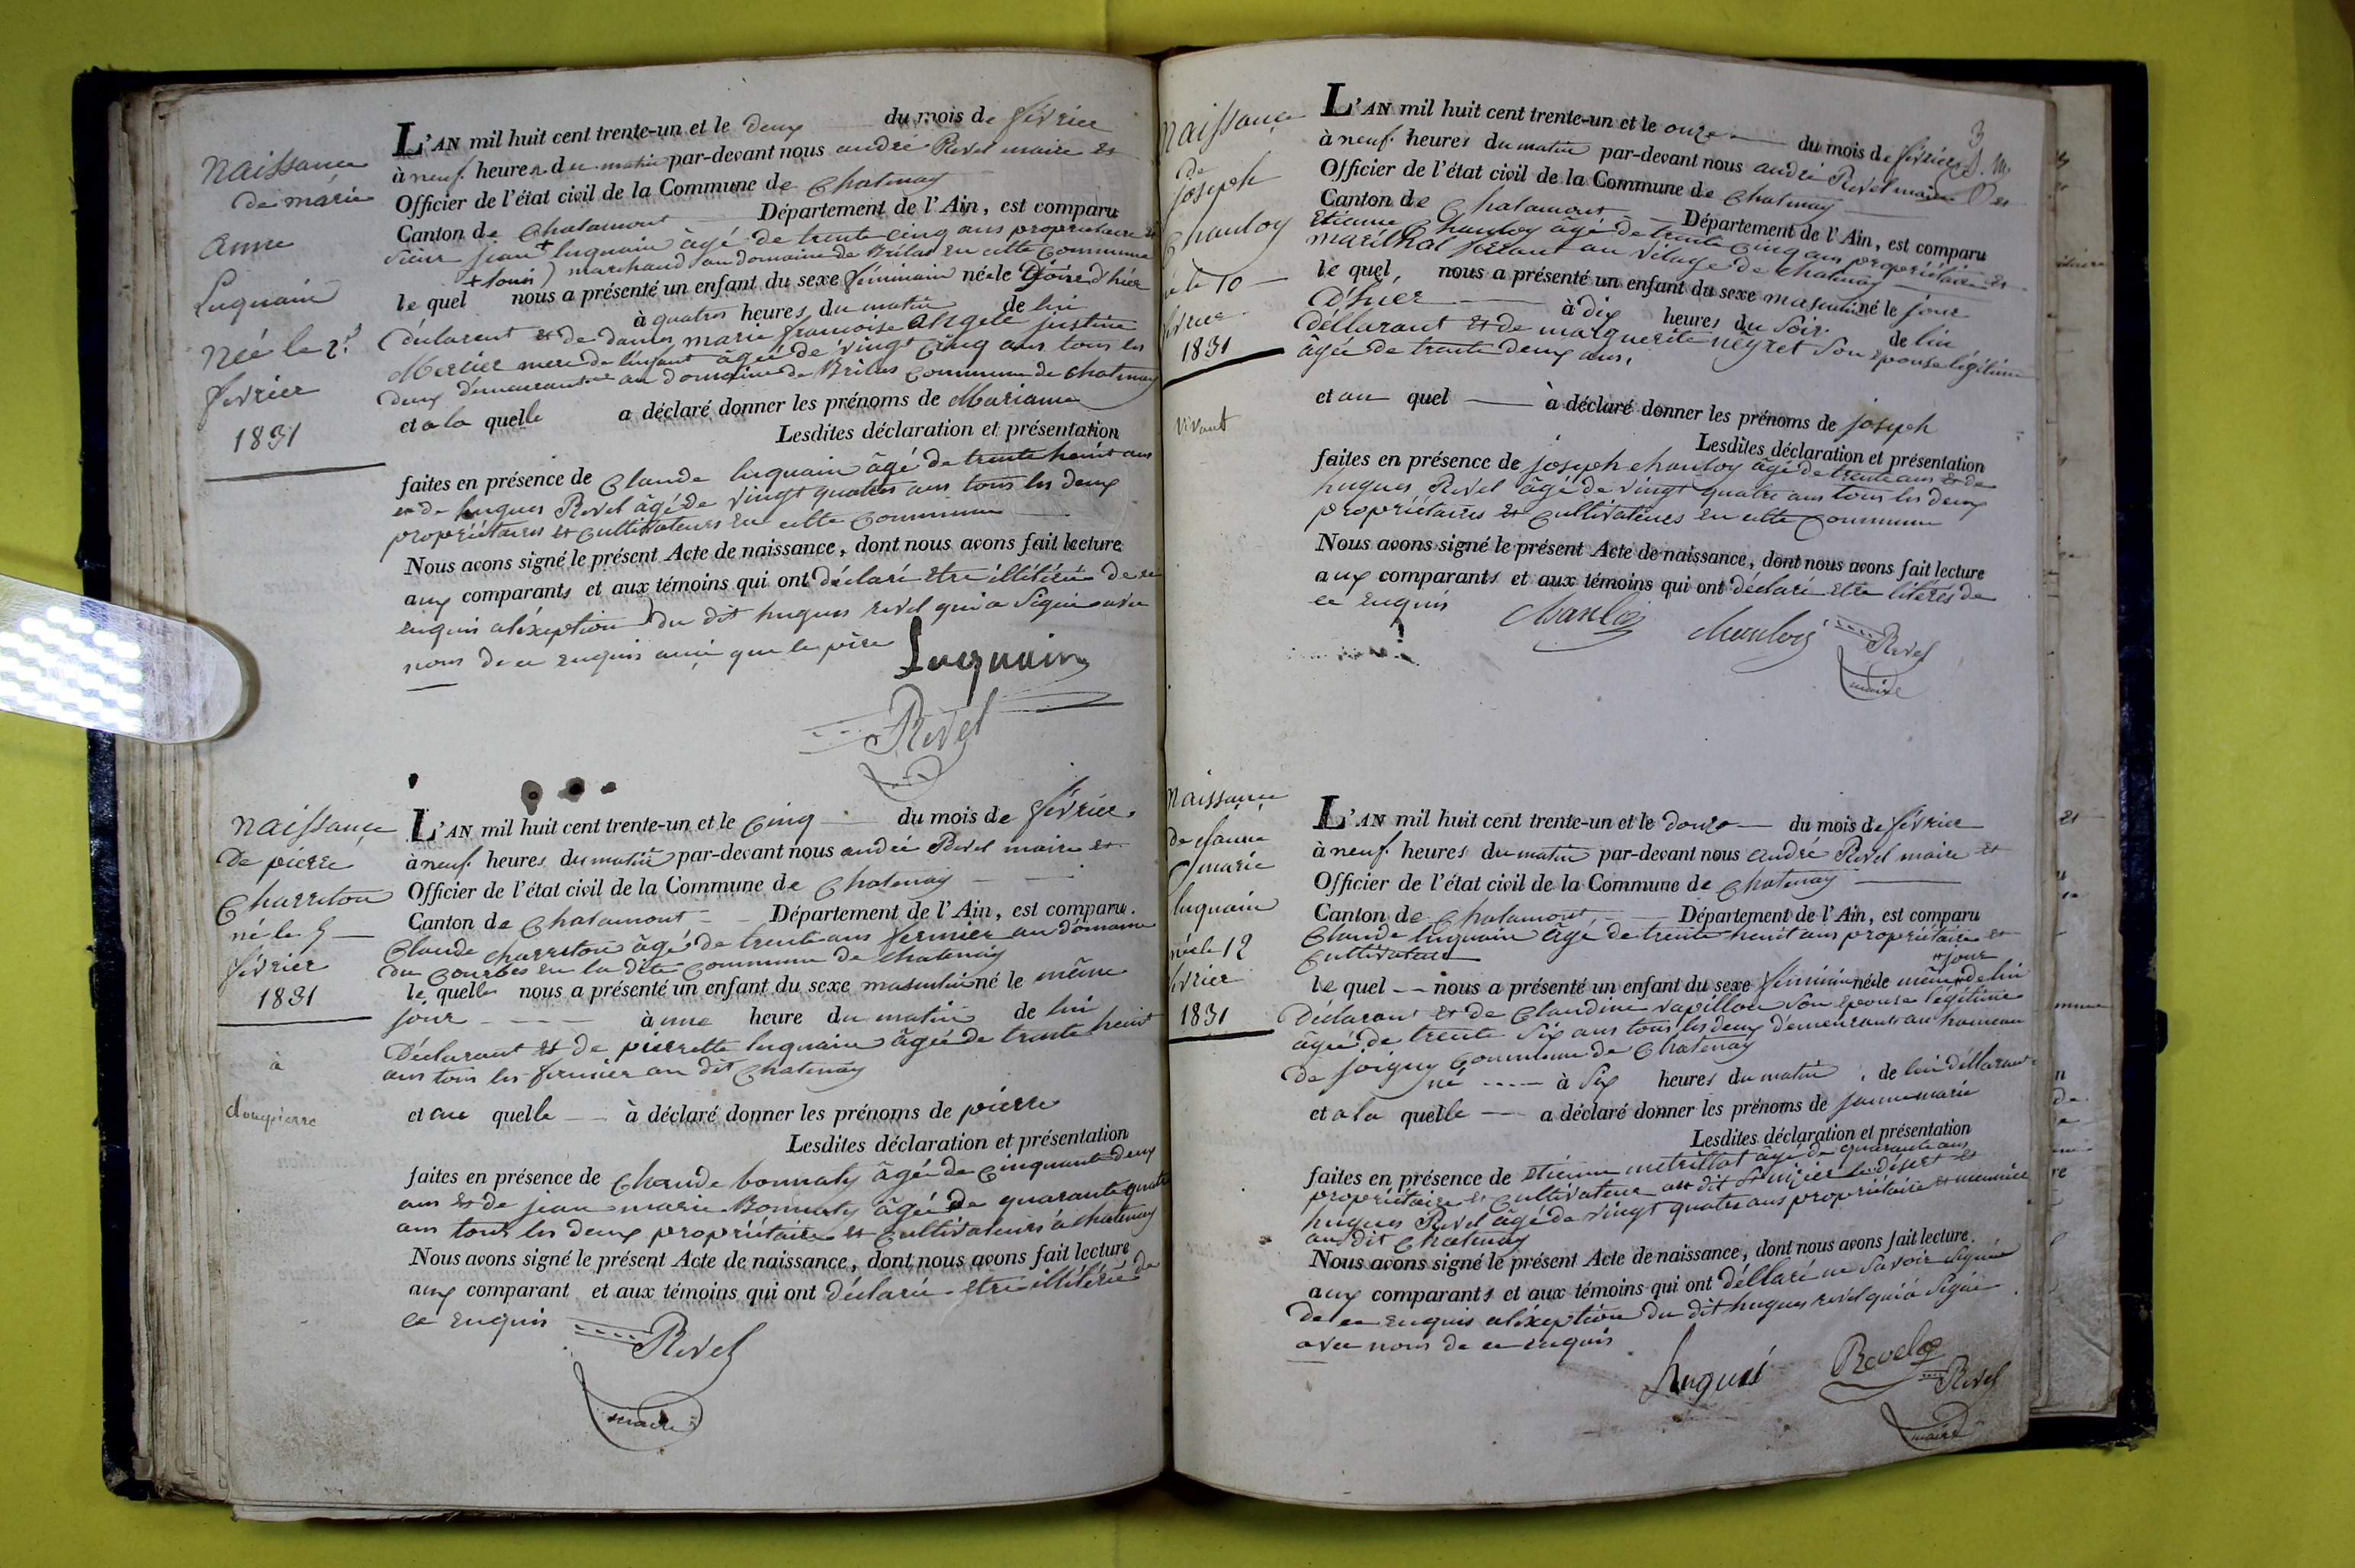 Naissance
de marie
anne
Luquain
Née le 2.
fevrier
1831
L'AN mil huit cent trente-un et le deux du mois de février
à neuf heures du matin par-devant nous andré Revel maire et
Officier de l'état civil de la Commune de Chatenay
Canton de Chalamont Département de l'Ain, est comparu
sieur jean + luquain âgé de trente cinq ans propriétaire et
+ louis) marchand au domaine de Brilas en cette Commune
le quel nous a présenté un enfant du sexe féminin née le jour d'hier
à quatre heures du matin de lui
déclarent et de dame marie francoise Angele justine
Mercier mere de l'enfant âgée de vingt Cinq ans tous les
deux demeurant au domaine de Brilas Commune de chatenay
et a la quelle a déclaré donner les prénoms de Marianne
Lesdites déclaration et présentation
faites en présence de Claude luquain âgé de trente heuit ans
et de hugues Revel âgé de vingt quatre ans tous les deux
propriétaires et Cultivateurs en cette Commune
Nous avons signé le présent Acte de naissance, dont nous avons fait lecture
aux comparants et aux témoins qui ont déclaré etre illitérés de ce
enquis aléxeption du dit hugues revel qui a Signé avec
nous de ce enquis ainsi que le père
Luquain
Revel
Naissance
De pierre
Charreton
né le 5
février
1831
à
dompierre
L'AN mil huit cent trente-un et le Cinq du mois de février.
à neuf heures du matin par-devant nous andré Revel maire et
Officier de l'état civil de la Commune de Chatenay
Canton de Chalamont Département de l'Ain, est comparu.
Claude charreton âgé de trente ans fermier au domaine
du Courbes en la dite Commune de chatenay
le quelle nous a présenté un enfant du sexe masculin né le même
jour à une heure du matin de lui
Déclarant et de pierrette luquain âgée de trente heuit
ans tous les fermier au dit Chatenay
et au quelle à déclaré donner les prénoms de pierre
Lesdites déclaration et présentation
faites en présence de Claude bonnaty âgé de Cinquante deux
ans et de jean marie Bonnaty âgé de quarante quatre
ans tous les deux propriétaire et Cultivateurs à chatenay
Nous avons signé le présent Acte de naissance, dont nous avons fait lecture
aux comparant et aux témoins qui ont déclaré etre illitéré de
ce enquis
Revel
maire
3
Naissance
de
joseph
Chanloy
né le 10
février
1831
vivant
L'AN mil huit cent trente-un et le onze du mois de février
à neuf heures du matin par-devant nous andré Revel maire et
Officier de l'état civil de la Commune de Chatenay
Canton de Chalamont Département de l'Ain, est comparu
Etienne Chanloy âgé de trente cinq ans propriétaire et
maréchal ferrant au vilage de chatenay
le quel, nous a présenté un enfant du sexe masculin né le jour
d'hier à dix heures du Soir. de lui
déllarant et de marguerite neyret Son épouse légitime
âgée de trente deux ans,
et au quel à déclaré donner les prénoms de joseph
Lesdites déclaration et présentation
faites en présence de joseph chanloy âgé de trente ans et de
hugues Revel âgé de vingt quatre ans tous les deux
propriétaires et Cultivateurs en cette Commune
Nous avons signé le présent Acte de naissance, dont nous avons fait lecture
aux comparants et aux témoins qui ont déclaré etre litérés de
ce enquis
Revel
maire
Naissance
de janne
marie
luquain
née le 12
fevrier
1831
L'AN mil huit cent trente-un et le douze du mois de février
à neuf heures du matin par-devant nous andré Revel maire et
Officier de l'état civil de la Commune de Chatenay
Canton de Chalamont, Département de l'Ain, est comparu
Claude luquain âgé de trente heuit ans propriétaire et
Cultivateur
+ jour
le quel nous a présenté un enfant du sexe féminin née le même + de lui
Déclarant et de Claudine vapillon Son épouse légitime
âgée de trente Six ans tous les deux demeurants au hameau
de joigny Commune de Chatenay
né à Six heures du matin, de lui déllarant
et a la quelle a déclaré donner les prénoms de jannemarie
Lesdites déclaration et présentation
faites en présence de etienne metrillot âgé de quarante ans
propriétaire et Cultivateur au dit St nizier le désert et
hugues Revel âgé de vingt quatre ans propriétaire et meunier
au dit Chatenay
Nous avons signé le présent Acte de naissance, dont nous avons fait lecture.
aux comparants et aux témoins qui ont déllaré ne Savoir Signé
de ce enquis aléxeption du dit hugues revel qui à Signé
avec nous de ce enquis
hugues Revel
Revel
maire